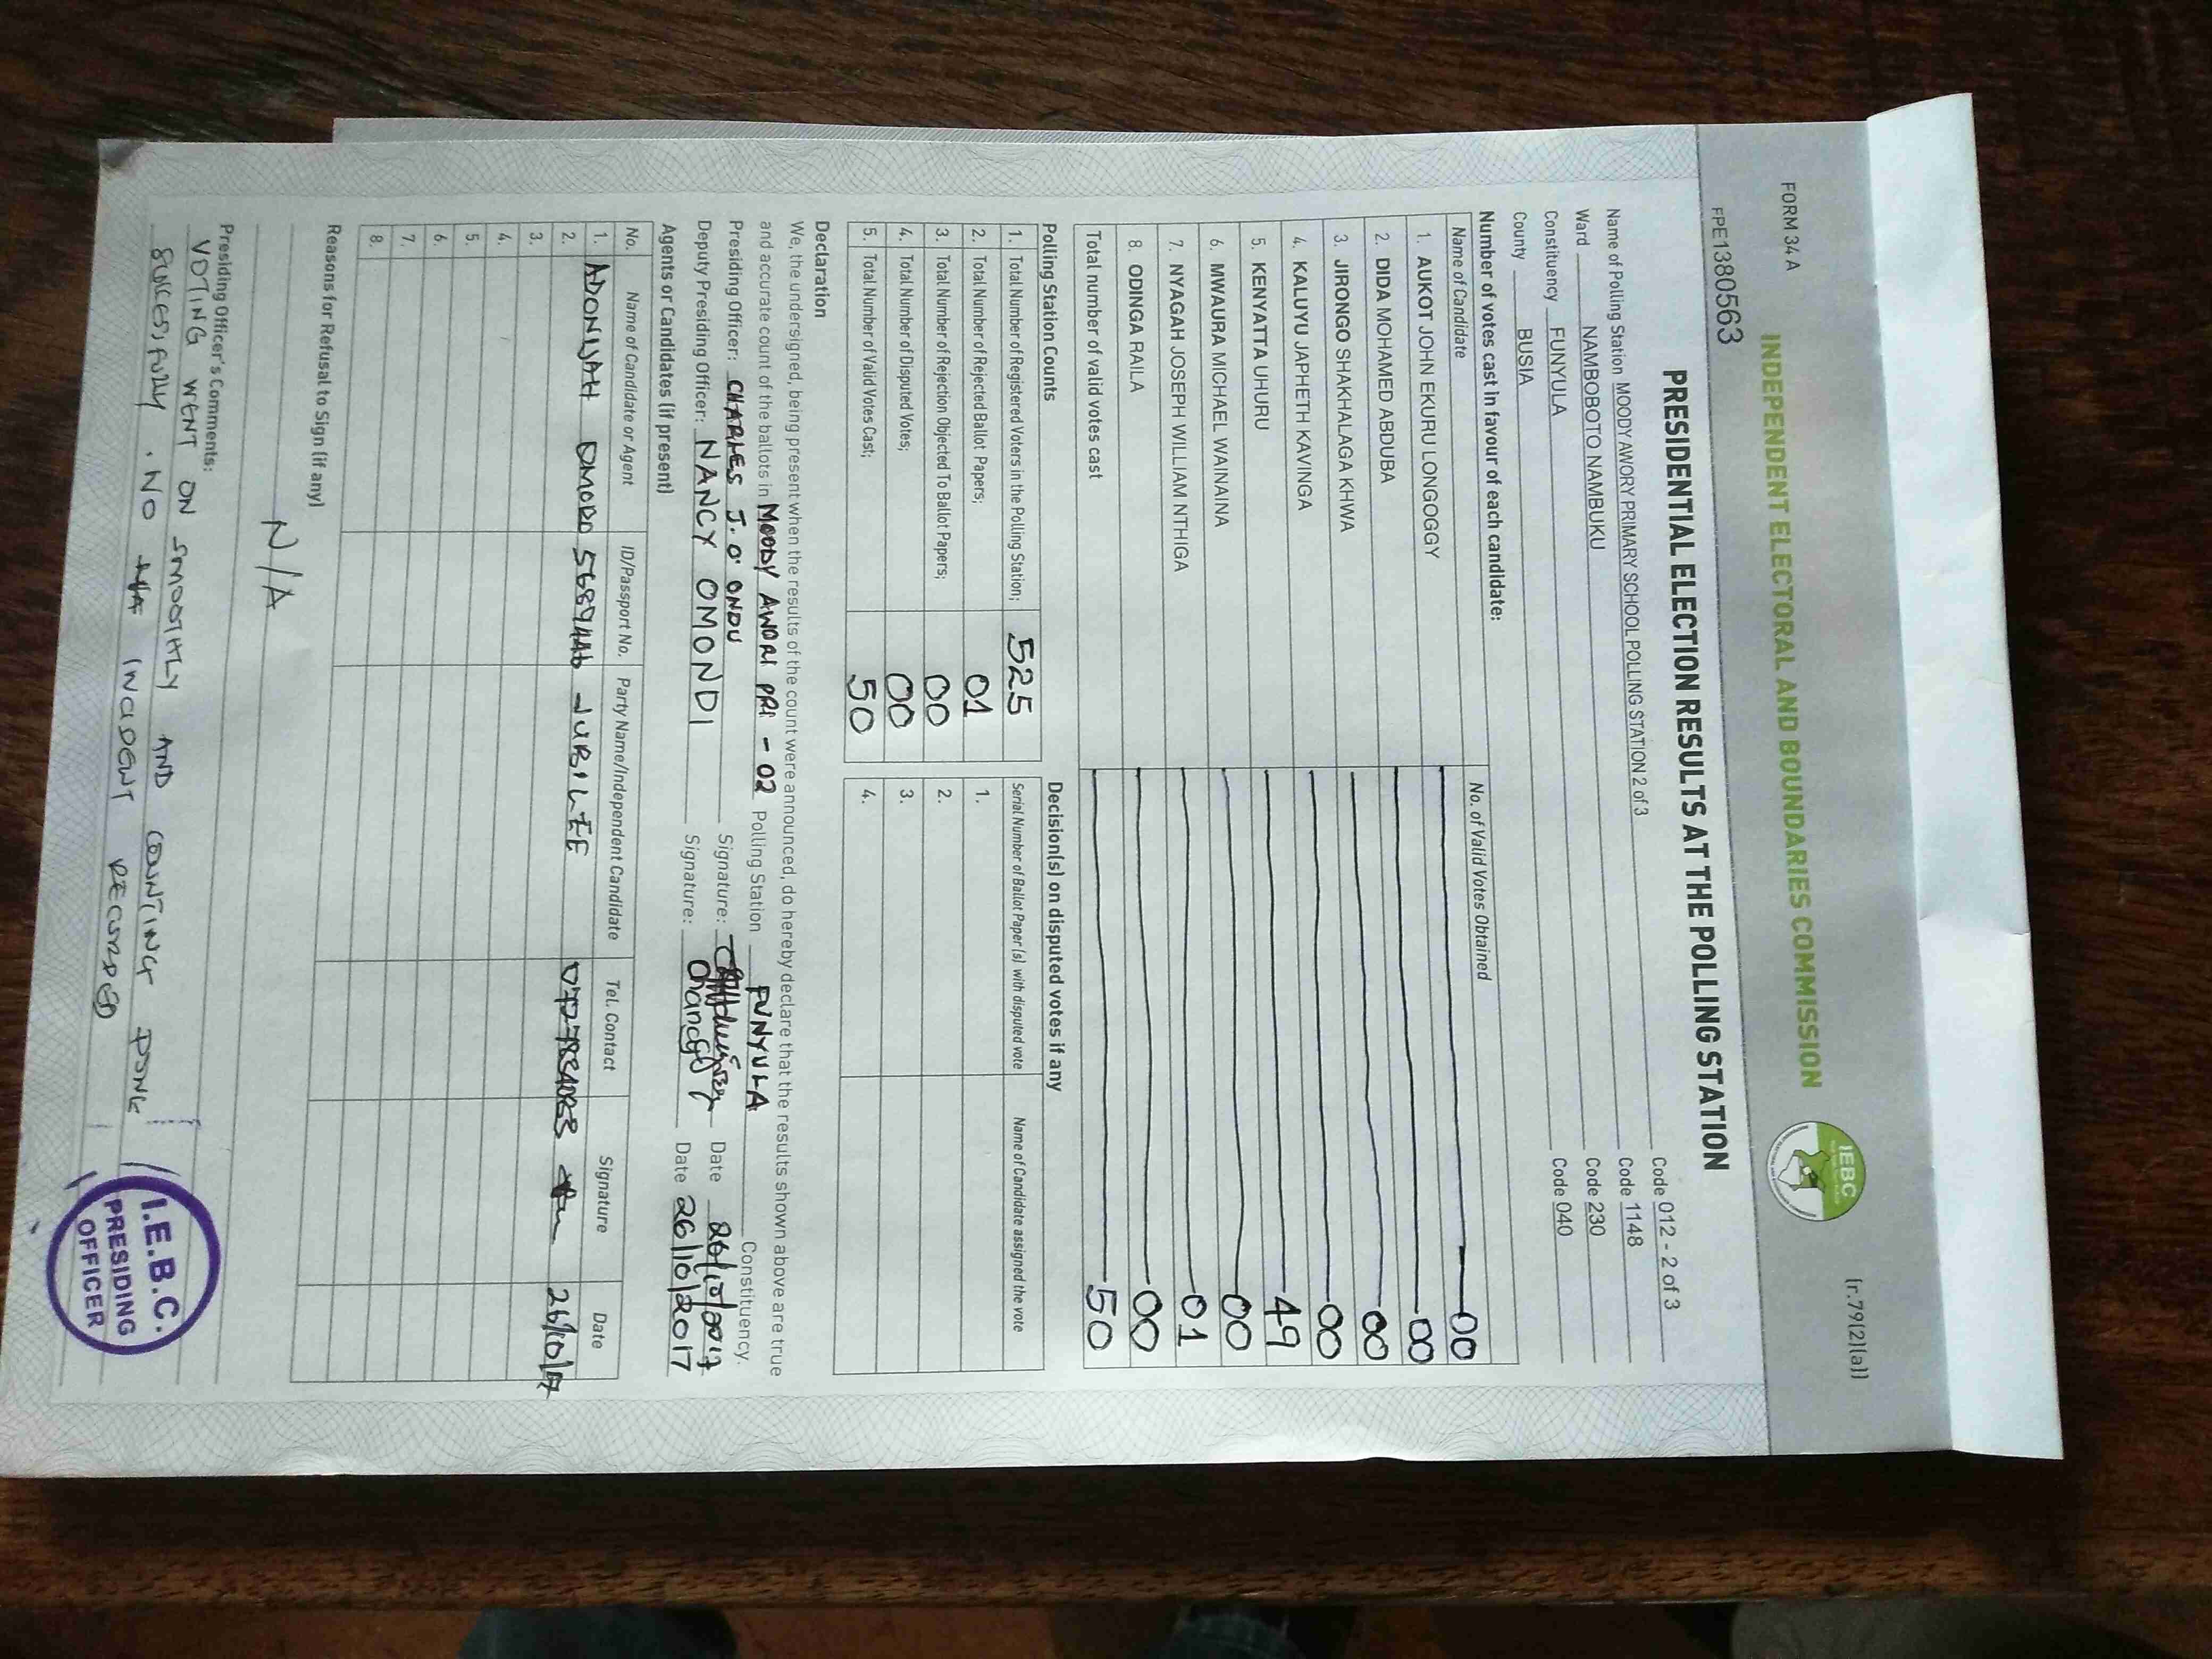 FORM 34 A
(r.79(2)(a))
INDEPENDENT ELECTORAL AND BOUNDARIES COMMISSION
IEBC
FPE1380563
PRESIDENTIAL ELECTION RESULTS AT THE POLLING STATION
Name of Polling Station MOODY AWORY PRIMARY SCHOOL POLLING STATION 2 of 3 Code 012 - 2 of 3
Ward NAMBOBOTO NAMBUKU Code 1148
Constituency FUNYULA Code 230
County BUSIA Code 040
Number of votes cast in favour of each candidate:
Name of Candidate No. of Valid Votes Obtained
1. AUKOT JOHN EKURU LONGOGGY 00
2. DIDA MOHAMED ABDUBA 00
3. JIRONGO SHAKHALAGA KHWA 00
4. KALUYU JAPHETH KAVINGA 00
5. KENYATTA UHURU 49
6. MWAURA MICHAEL WAINAINA 00
7. NYAGAH JOSEPH WILLIAM NTHIGA 01
8. ODINGA RAILA 00
Total number of valid votes cast 50
Polling Station Counts
1. Total Number of Registered Voters in the Polling Station; 525
2. Total Number of Rejected Ballot Papers; 01
3. Total Number of Rejection Objected To Ballot Papers; 00
4. Total Number of Disputed Votes; 00
5. Total Number of Valid Votes Cast; 50
Decision(s) on disputed votes if any
Serial Number of Ballot Paper(s) with disputed vote Name of Candidate assigned the vote
1.
2.
3.
4.
Declaration
We, the undersigned, being present when the results of the count were announced, do hereby declare that the results shown above are true
and accurate count of the ballots in MOODY AWORI PRI - 02 Polling Station FUNYULA Constituency.
Presiding Officer: CHARLES J. O. ONDU Signature: Date 26/10/2017
Deputy Presiding Officer: NANCY OMONDI Signature: Date 26/10/2017
Agents or Candidates (if present)
No. Name of Candidate or Agent ID/Passport No. Party Name/Independent Candidate Tel. Contact Signature Date
1. ADONIJAH OMORO JUBILEE 26/10/17
2.
3.
4.
5.
6.
7.
8.
Reasons for Refusal to Sign (if any)
N/A
Presiding Officer's Comments:
VOTING WENT ON SMOOTHLY AND COUNTING DONE
SUCCESSFULLY. NO INCIDENT RECORDED
I.E.B.C.
PRESIDING
OFFICER